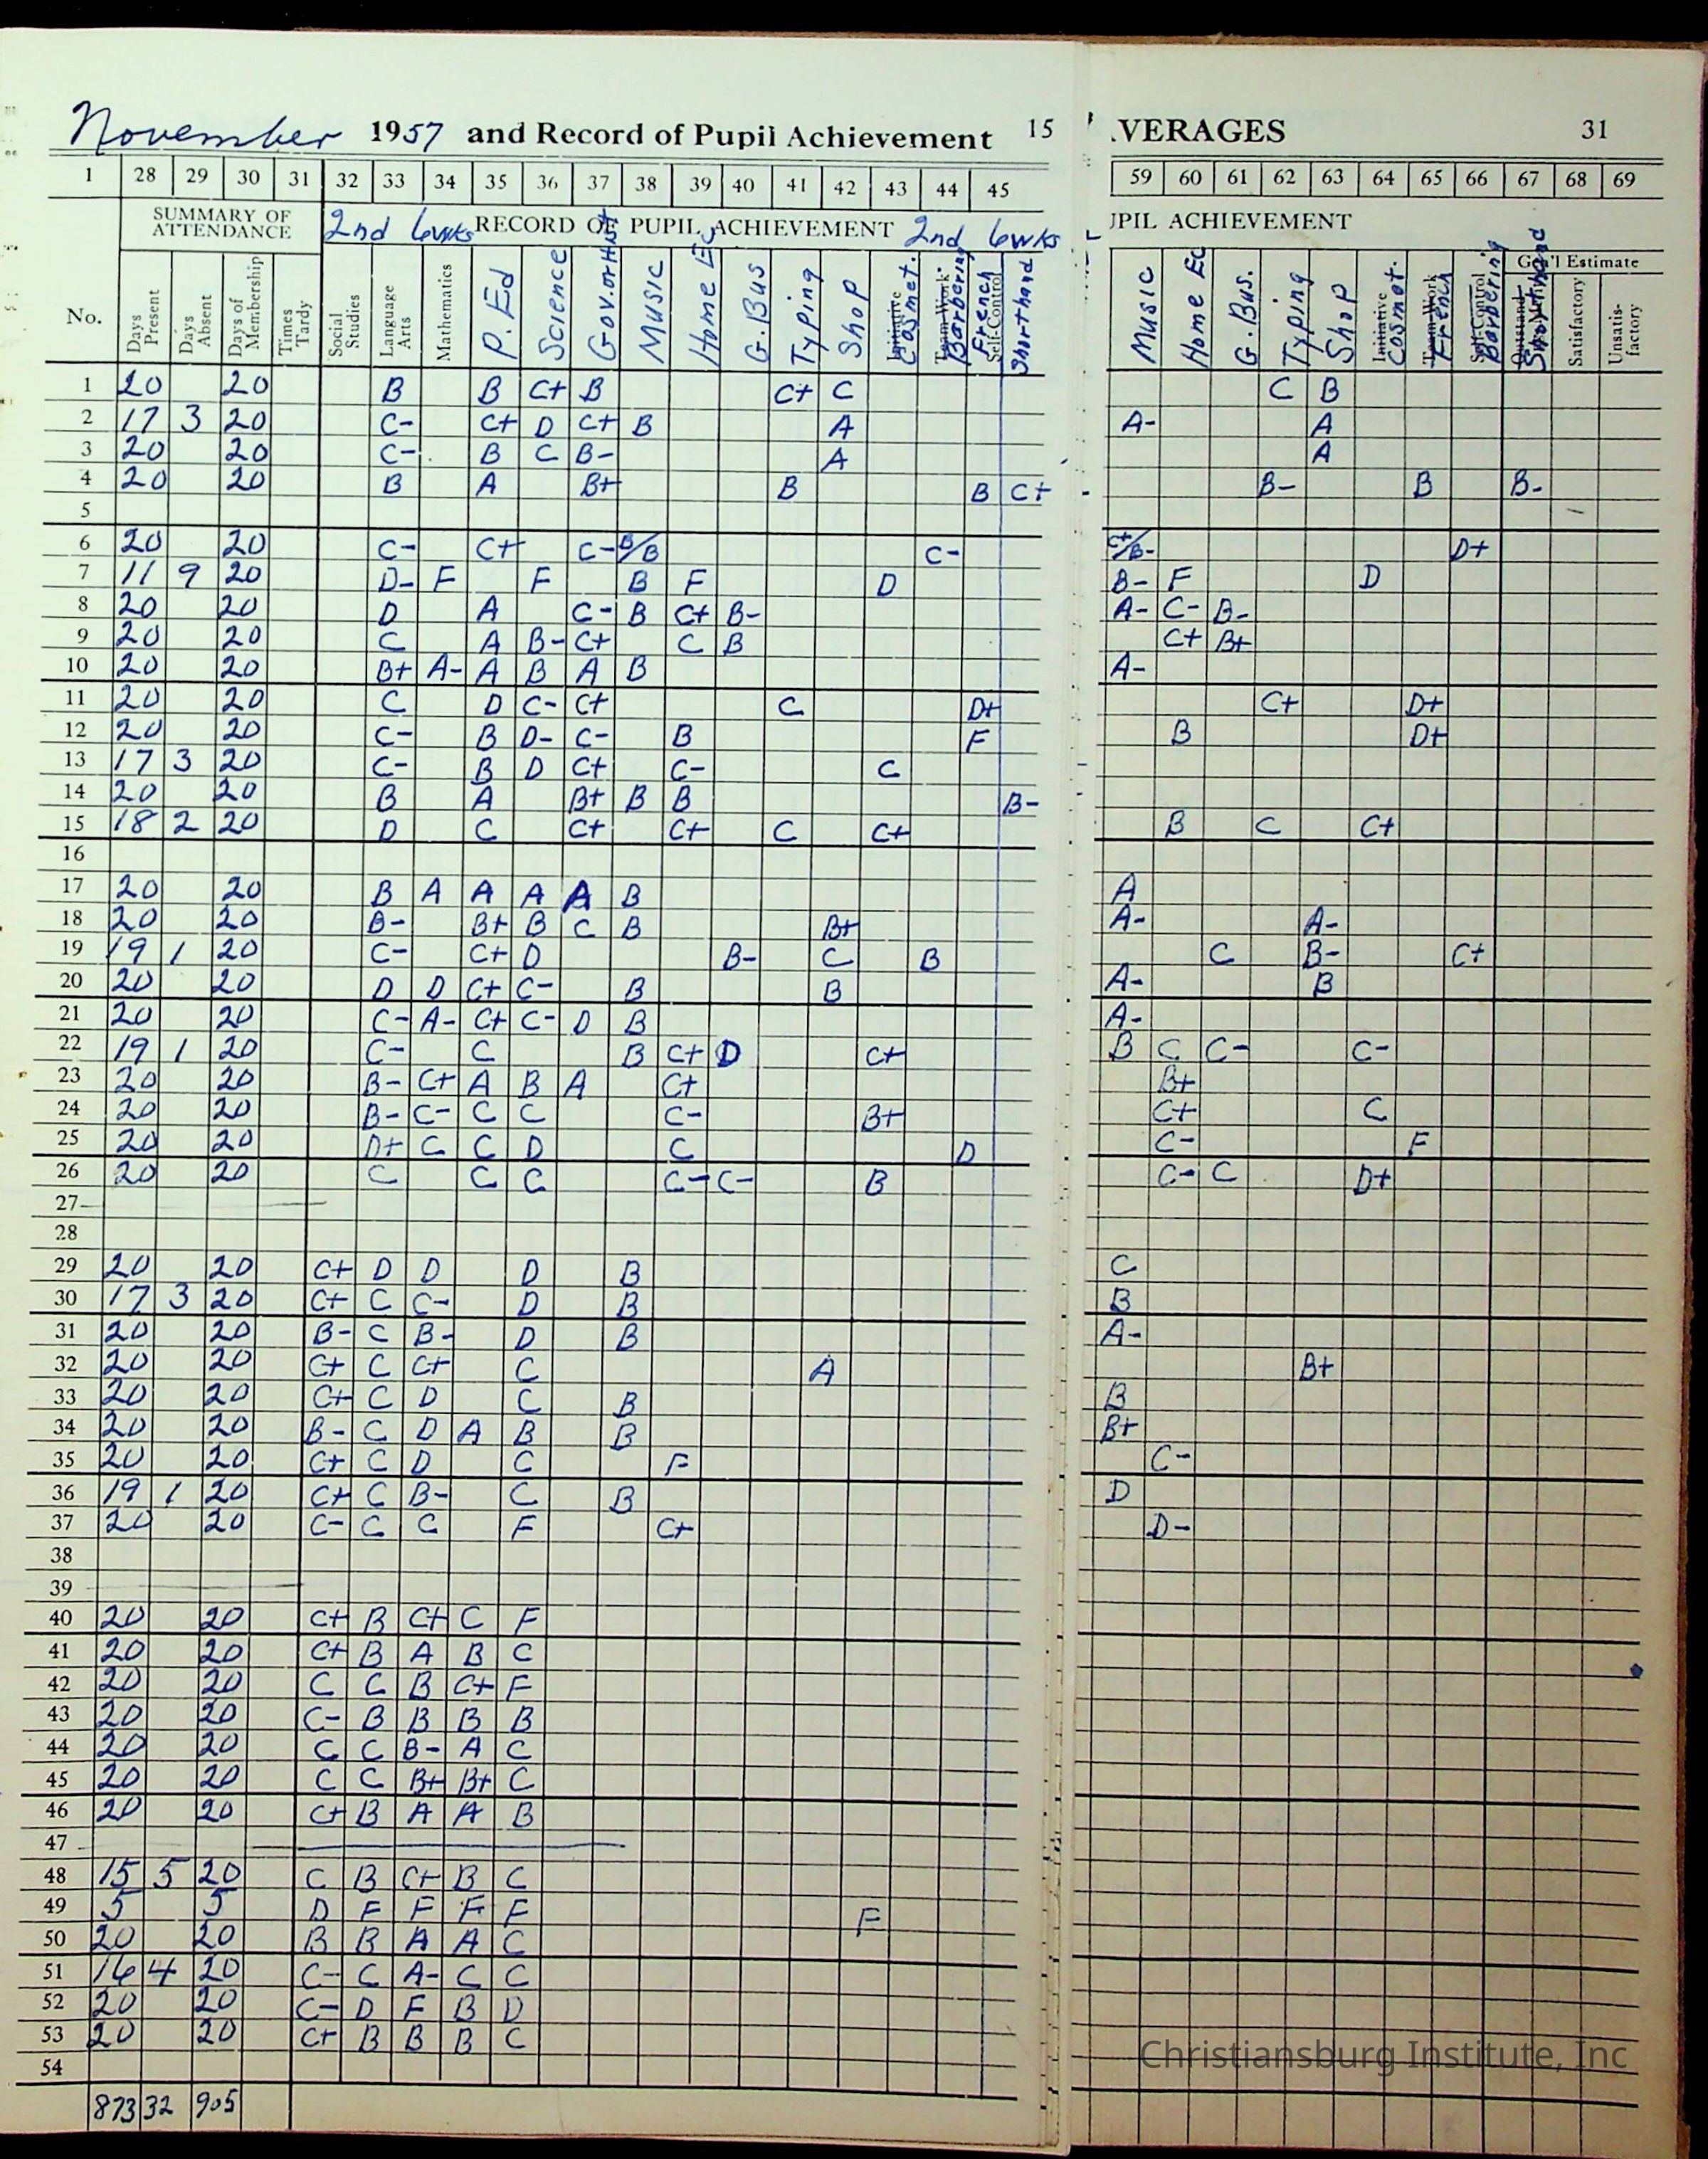 November 1957 and Record of Pupil Achievement 15
VERAGES 31
1 28 29 30 31 32 33 34 35 36 37 38 39 40 41 42 43 44 45
59 60 61 62 63 64 65 66 67 68 69
SUMMARY OF ATTENDANCE 2nd 6wks RECORD OF PUPIL ACHIEVEMENT 2nd 6wks
UPIL ACHIEVEMENT
Gen'l Estimate
No. Days Present Days Absent Days of Membership Times Tardy Social Studies Language Arts Mathematics P. Ed Science Gov. or Hist Music Home Ec G. Bus Typing Shop Initiative Cosmet. Team Work Barbering French Self-Control Shorthand
Music Home Ec G. Bus. Typing Shop Initiative Cosmet. Team Work French Self-Control Barbering Outstand- Shorthand Satisfactory Unsatis-factory
1 20 20 B B C+ B C+ C C B
2 17 3 20 C- C+ D C+ B A A- A
3 20 20 C- B C B- A A
4 20 20 B A B+ B B C+ B- B B-
5
6 20 20 C- C+ C- B/B C- C+/B- D+
7 11 9 20 D- F F B F D B- F D
8 20 20 D A C- B C+ B- A- C- B-
9 20 20 C A B- C+ C B C+ B+
10 20 20 B+ A- A B A B A-
11 20 20 C D C- C+ C D+ C+ D+
12 20 20 C- B D- C- B F B D+
13 17 3 20 C- B D C+ C- C
14 20 20 B A B+ B B B-
15 18 2 20 D C C+ C+ C C+ B C C+
16
17 20 20 B A A A A B A
18 20 20 B- B+ B C B B+ A- A-
19 19 1 20 C- C+ D B- C B C B- C+
20 20 20 D D C+ C- B B A- B
21 20 20 C- A- C+ C- D B A-
22 19 1 20 C- C B C+ D C+ B C C- C-
23 20 20 B- C+ A B A C+ B+
24 20 20 B- C- C C C- B+ C+ C
25 20 20 D+ C C D C D C- F
26 20 20 C C C C- C- B C- C D+
27
28
29 20 20 C+ D D D B C
30 17 3 20 C+ C C- D B B
31 20 20 B- C B- D B A-
32 20 20 C+ C C+ C A B+
33 20 20 C+ C D C B B
34 20 20 B- C D A B B B+
35 20 20 C+ C D C F C-
36 19 1 20 C+ C B- C B D
37 20 20 C- C C F C+ D-
38
39
40 20 20 C+ B C+ C F
41 20 20 C+ B A B C
42 20 20 C C B C+ F
43 20 20 C- B B B B
44 20 20 C C B- A C
45 20 20 C C B+ B+ C
46 20 20 C+ B A A B
47
48 15 5 20 C B C+ B C
49 5 5 D F F F F F
50 20 20 B B A A C
51 16 4 20 C- C A- C C
52 20 20 C- D F B D
53 20 20 C+ B B B C
54
873 32 905
Christiansburg Institute, Inc